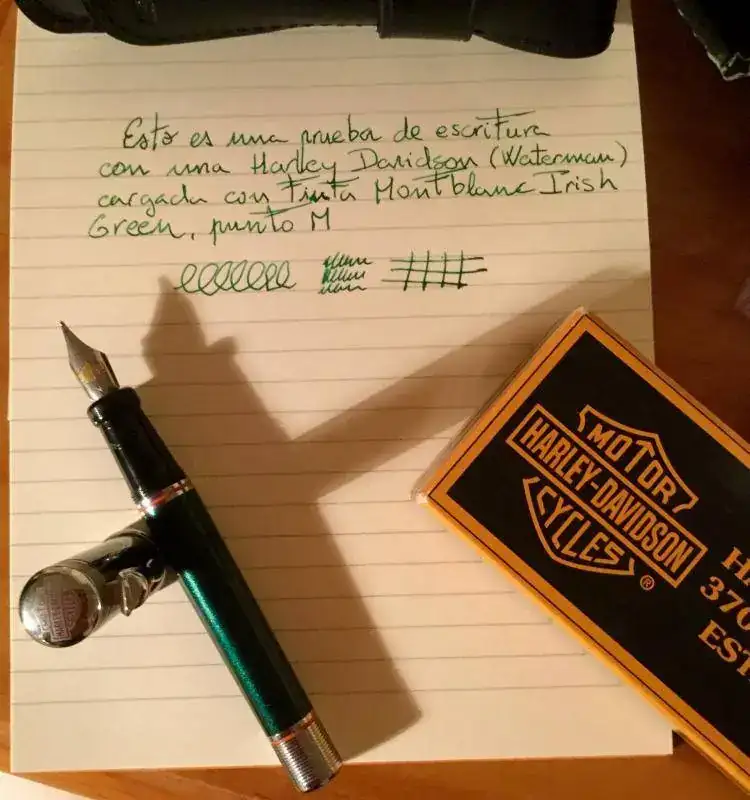 Esto es una prueba de escritura
con una Harley Davidson (Waterman)
cargada con tinta Montblanc Irish
Green, punto M
MOTOR
HARLEY-DAVIDSON
CYCLES
®
370
EST